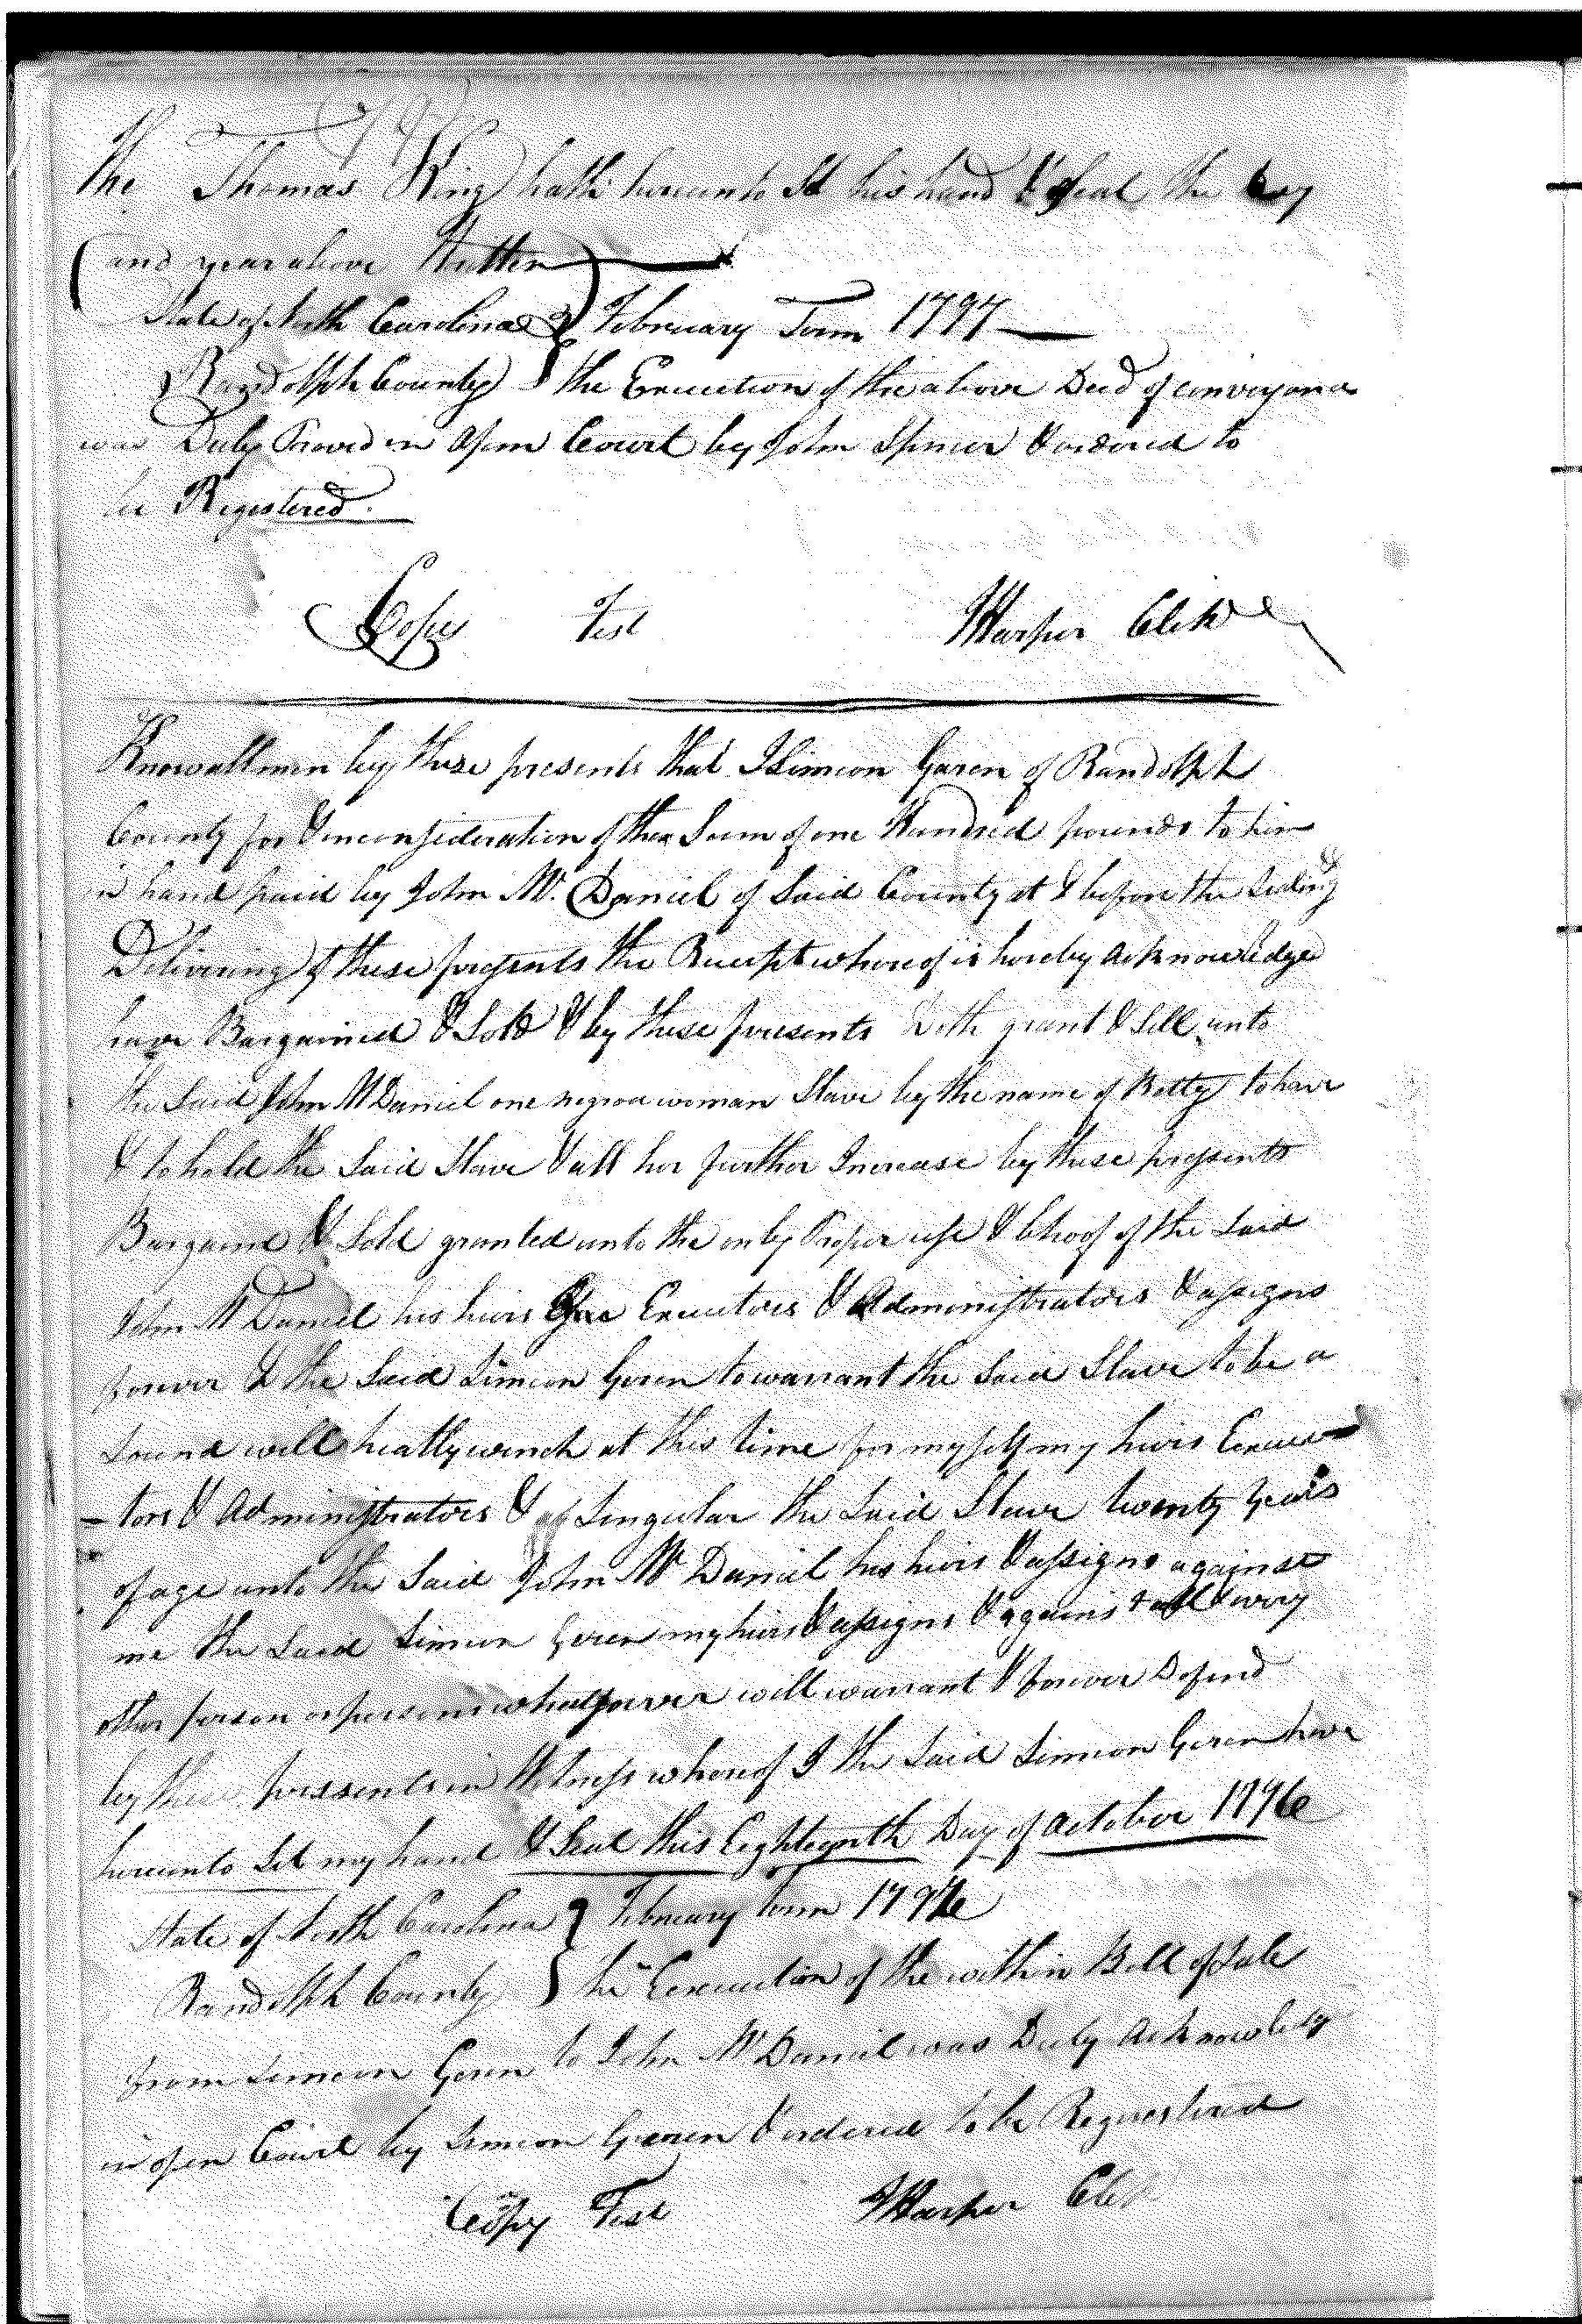 the Thomas King hath hereunto Set his hand & Seal the Day
and year above Written
State of North Carolina } February Term 1797
Randolph County } the Execution of the above Deed of conveyance
was Duly Proved in Open Court by John Spencer & ordered to
be Registered.
Copy Test JHarper Clk
Know all men by these presents that I Simeon Geren of Randolph
County for & in consideration of the Sum of one Hundred pounds to him
in hand paid by John Mc. Daniel of Said County at & before the Sealing &
Delivering of these presents the Receipt whereof is hereby acknowledge
have Bargained & Sold & by these presents doth grant & Sell unto
the Said John McDaniel one negroa woman Slave by the name of Betty to have
& to hold the Said Slave & all her further Increase by these presents
Bargaind & Sold granted unto the only Proper use & behoof of the Said
John McDaniel his heirs Executors & Administrators & assigns
forever & the Said Simeon Geren to warrant the Said Slave to be a
Sound well healthy wench at this time for myself my heirs Execu
-tors & Administrators & Singular the Said Slave twenty years
of age unto the Said John Mc Daniel his heirs & assigns against
me the Said Simeon Geren my heirs & assigns & against all & every
other person or persons whatsoever will warrant & forever Defend
by these pressents in Witness whereof I the Said Simeon Geren have
hereunto Set my hand & Seal this Eighteenth Day of October 1796
State of North Carolina } February Term 1797
Randolph County } the Execution of the within Bill of Sale
from Simeon Geren to John McDaniel was Duly Acknowledg
in open Court by Simeon Geren & ordered to be Registered
Copy Test JHarper Clk